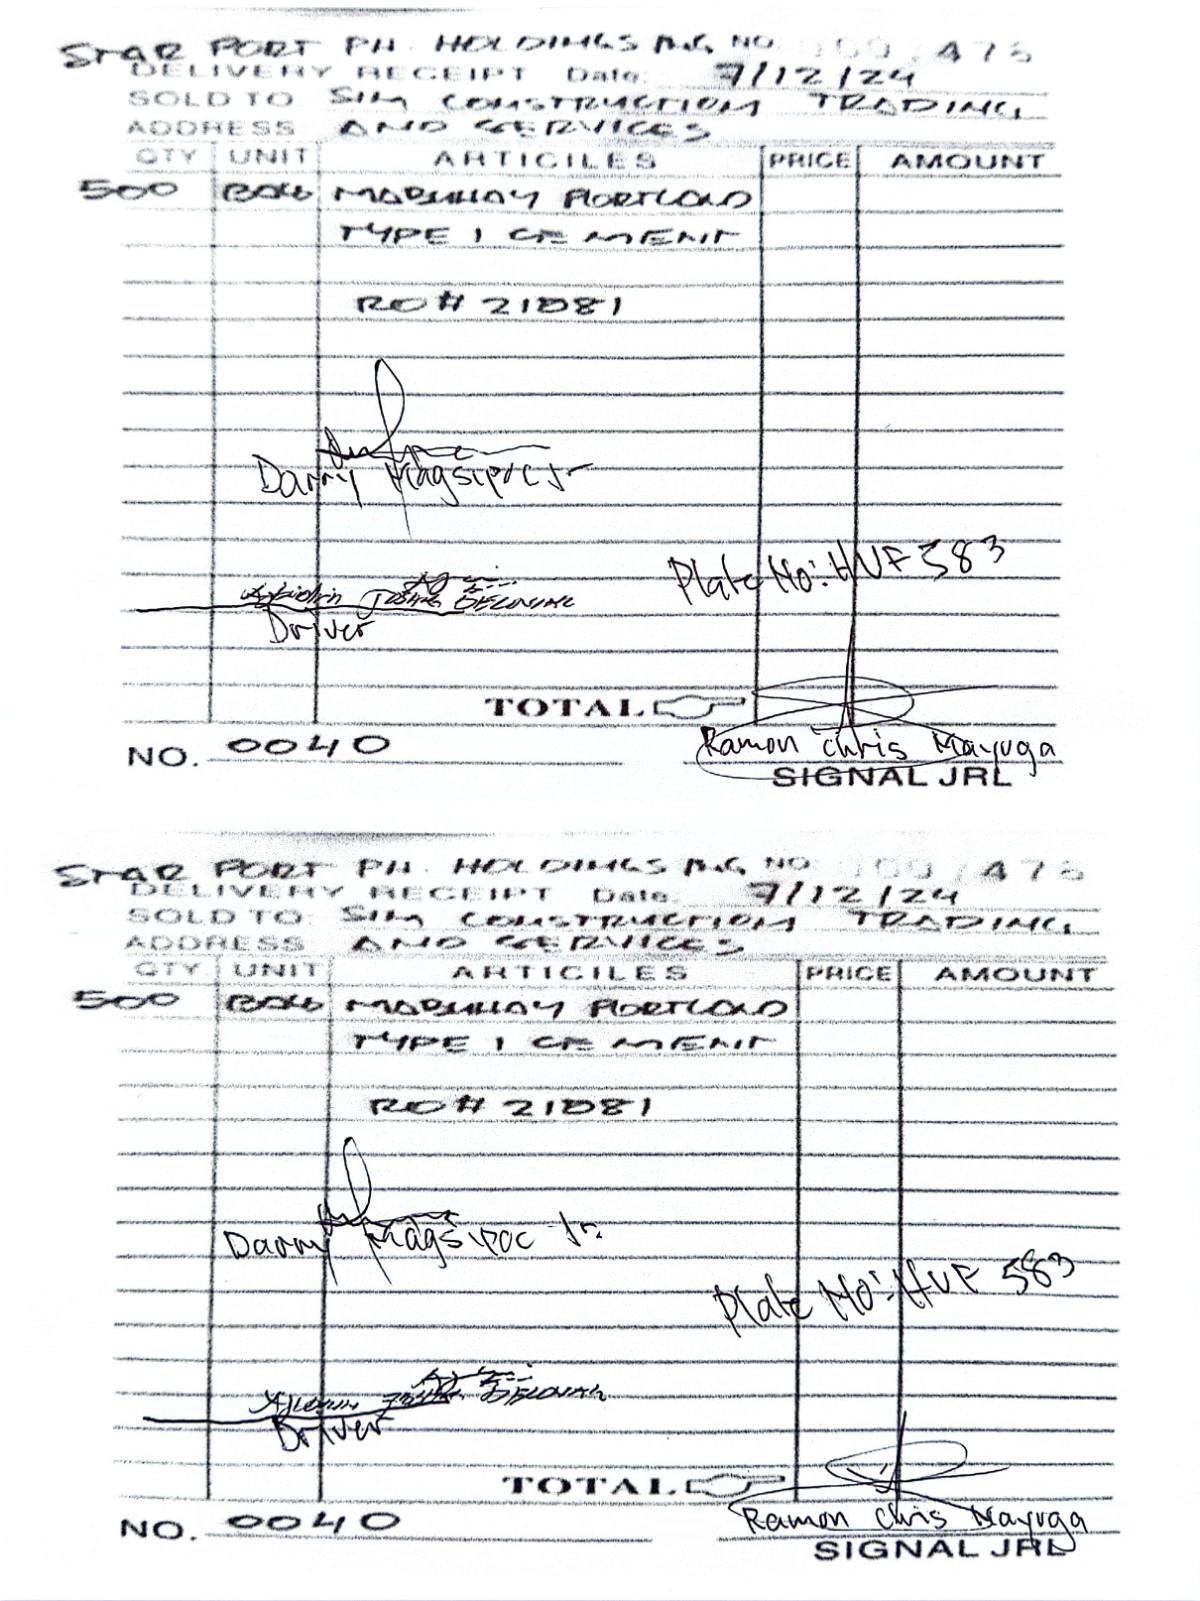 STAR PORT PH. HOLDINGS INC NO. 475
DELIVERY RECEIPT Date: 7/12/24
SOLD TO SIM CONSTRUCTION TRADING
ADDRESS AND SERVICES
QTY UNIT ARTICILES PRICE AMOUNT
500 BAG MABUHAY PORTLAND
TYPE 1 CEMENT
RO# 21081
Danny Magsipoc Jr
Plate No: HVF 583
Driver
TOTAL
NO. 0040
Ramon Chris Mayuga
SIGNAL JRL
STAR PORT PH. HOLDINGS INC NO 475
DELIVERY RECEIPT Date: 7/12/24
SOLD TO: SIM CONSTRUCTION TRADING
ADDRESS AND SERVICES
QTY UNIT ARTICILES PRICE AMOUNT
500 BAG MABUHAY PORTLAND
TYPE 1 CEMENT
RO# 21081
Danny Magsipoc Jr.
Plate No: HVF 583
Driver
TOTAL
NO. 0040
Ramon Chris Mayuga
SIGNAL JRL